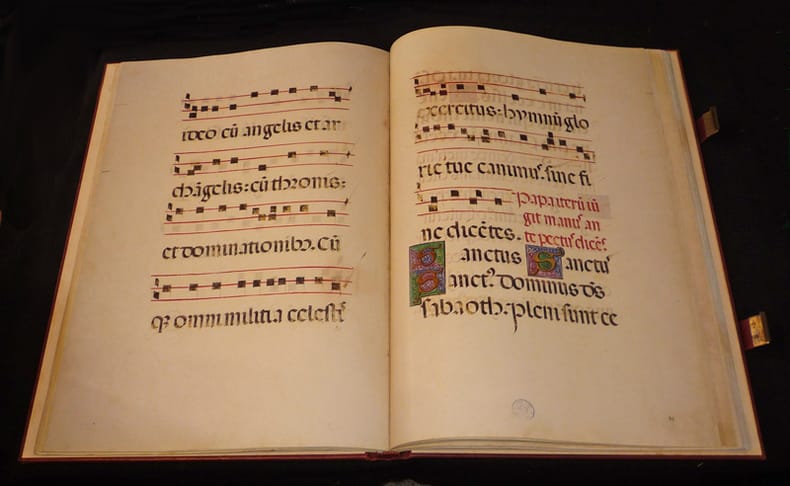 ideo cū angelis et ar
chāgelis: cū thronis:
et dominationibꝫ. Cū
qꝫ omni militia celestꝭ
exercitus: hymnū glo
rie tue canimus. sine fi
Papa iterū iū
git manus an
te pectus dicēs.
ne dicētes.
Sanctus Sanctus
Sanctꝰ. Dominus dēs
sabaoth. pleni sunt ce